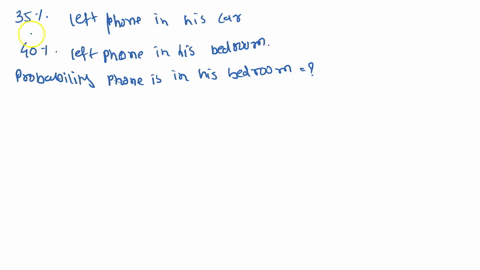 35%. left phone in his car
40%. left phone in his bedroom.
Probability phone is in his bedroom = ?